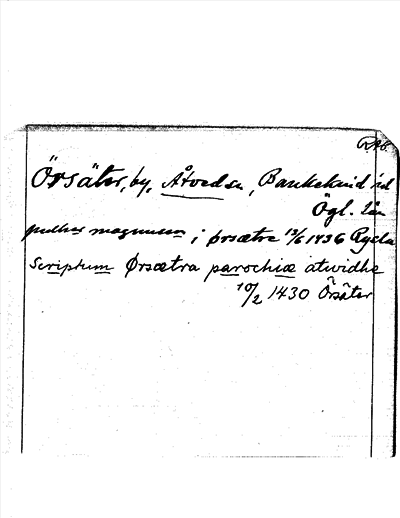 RAB.
Örsäter, by, Åtvidsn, Bankekind hd
Ögl. län
magnusson i ørsætre 13/6 1436 Rycka
Scriptum Ørsætra parochiæ atwidhe
10/2 1430 Örsäter